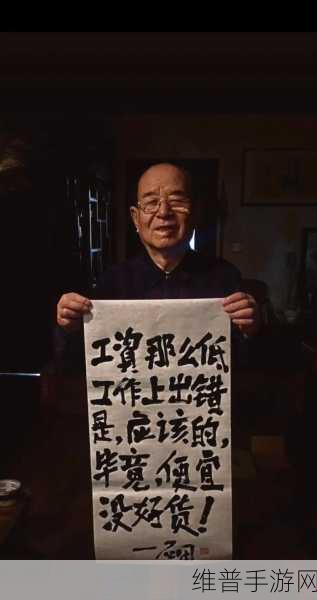 工资那么低
工作上出错
是,应该的,
毕竟,便宜
没好货!
维普手游网